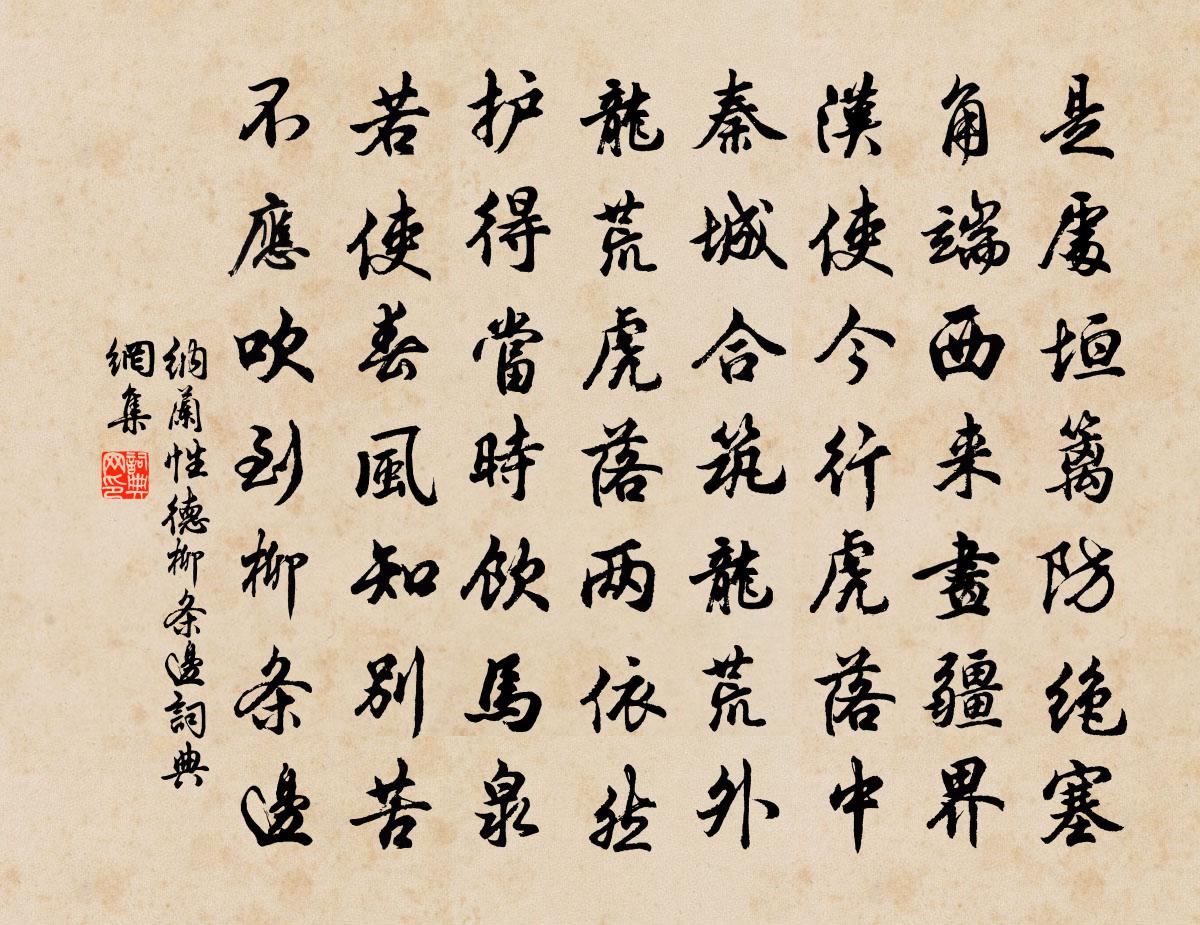 是處垣篱防绝塞
角端西来畫疆界
漢使今行虎落中
秦城合筑龍荒外
龍荒虎落两依然
护得當時飲馬泉
若使春風知别苦
不應吹到柳条邊
纳蘭性德柳条邊詞典
網集
詞典网印